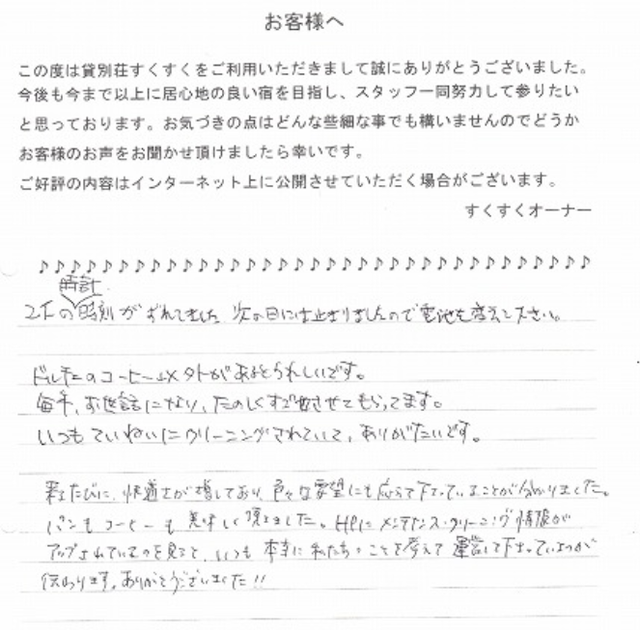 お客様へ
この度は貸別荘すくすくをご利用いただきまして誠にありがとうございました。
今後も今まで以上に居心地の良い宿を目指し、スタッフ一同努力して参りたい
と思っております。お気づきの点はどんな些細な事でも構いませんのでどうか
お客様のお声をお聞かせ頂けましたら幸いです。
ご好評の内容はインターネット上に公開させていただく場合がございます。
すくすくオーナー
♪♪♪♪♪♪♪♪♪♪♪♪♪♪♪♪♪♪♪♪♪♪♪♪♪♪♪♪♪♪♪♪♪♪♪
時計
2Fの時刻がずれてました 次の日には止まりましたので電池を変えて下さい。
ドルチェのコーヒー以外があるとうれしいです。
毎年、お世話になり、たのしくすごさせてもらってます。
いつもていねいにクリーニングされていて、ありがたいです。
来るたびに、快適さが増しており、色々な要望にも応えて下さっていることが分かりました。
パンもコーヒーも美味しく頂きました。HPにメンテナンス・クリーニング情報が
アップされているのを見ると、いつも本当に私たちのことを考えて運営して下さっているのが
伝わります。ありがとうございました!!